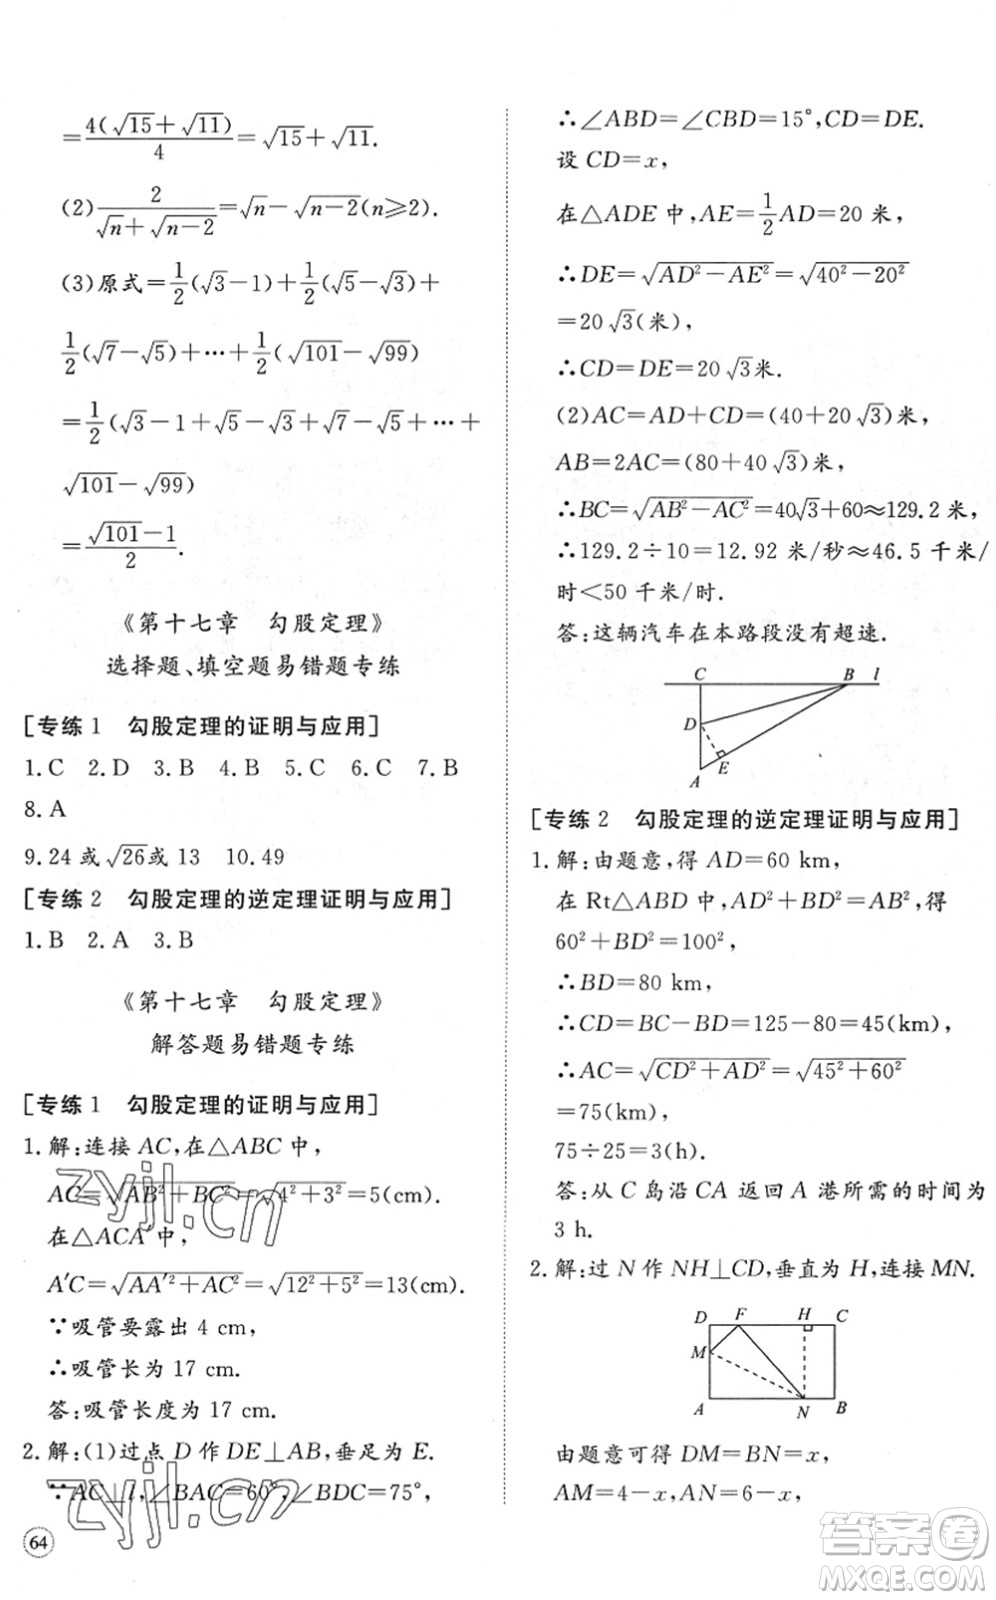 =4(√15+√11)/4=√15+√11.
(2)2/(√n+√(n-2))=√n-√(n-2)(n≥2).
(3)原式=1/2(√3-1)+1/2(√5-√3)+
1/2(√7-√5)+…+1/2(√101-√99)
=1/2(√3-1+√5-√3+√7-√5+…+
√101-√99)
=(√101-1)/2.
《第十七章 勾股定理》
选择题、填空题易错题专练
[专练1 勾股定理的证明与应用]
1.C 2.D 3.B 4.B 5.C 6.C 7.B
8.A
9.24或√26或13 10.49
[专练2 勾股定理的逆定理证明与应用]
1.B 2.A 3.B
《第十七章 勾股定理》
解答题易错题专练
[专练1 勾股定理的证明与应用]
1.解:连接AC,在△ABC中,
AC=√(AB²+BC²)=√(4²+3²)=5(cm).
在△ACA′中,
A′C=√(AA′²+AC²)=√(12²+5²)=13(cm).
∵吸管要露出4 cm,
∴吸管长为17 cm.
答:吸管长度为17 cm.
2.解:(1)过点D作DE⊥AB,垂足为E.
∵AC⊥l,∠BAC=60°,∠BDC=75°,
64
∴∠ABD=∠CBD=15°,CD=DE.
设CD=x,
在△ADE中,AE=1/2AD=20米,
∴DE=√(AD²-AE²)=√(40²-20²)
=20√3(米),
∴CD=DE=20√3米.
(2)AC=AD+CD=(40+20√3)米,
AB=2AC=(80+40√3)米,
∴BC=√(AB²-AC²)=40√3+60≈129.2米,
∴129.2÷10=12.92米/秒≈46.5千米/
时<50千米/时.
答:这辆汽车在本路段没有超速.
C B l
D
A E
[专练2 勾股定理的逆定理证明与应用]
1.解:由题意,得AD=60 km,
在Rt△ABD中,AD²+BD²=AB²,得
60²+BD²=100²,
∴BD=80 km,
∴CD=BC-BD=125-80=45(km),
∴AC=√(CD²+AD²)=√(45²+60²)
=75(km),
75÷25=3(h).
答:从C岛沿CA返回A港所需的时间为
3 h.
2.解:过N作NH⊥CD,垂直为H,连接MN.
D F H C
M
A N B
由题意可得DM=BN=x,
AM=4-x,AN=6-x,
zyjl.cn
zyjl.cn
答案卷
MXQE.COM